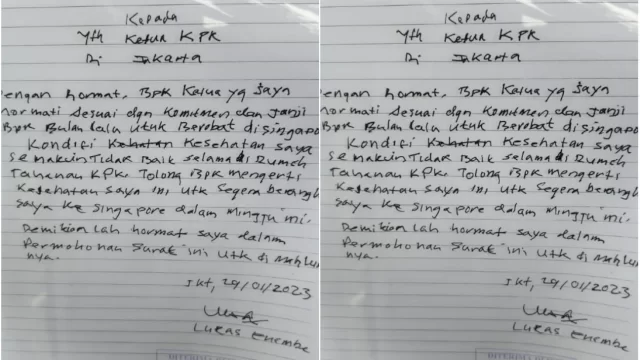 Kepada
Yth Ketua KPK
Di Jakarta
engan hormat, BPK Ketua yg saya
hormati sesuai dgn Komitmen dan Janji
Bpk Bulan lalu utuk Berobat disingapo
Kondisi Kesehatan saya
semakin Tidak Baik selama di Rumah
Tahanan KPK. Tolong Bpk mengerti
Kesehatan saya ini utk segera berangk
saya ke Singapore dalam minggu ini.
Demikian lah hormat saya dalam
Permohonan surat ini utk di maklum
nya.
Jkt, 29/01/2023
Lukas Enembe
Kepada
Yth Ketua KPK
Di Jakarta
engan hormat, BPK Ketua yg saya
hormati sesuai dgn Komitmen dan Janji
Bpk Bulan lalu utuk Berobat disingapo
Kondisi Kesehatan saya
semakin Tidak Baik selama di Rumah
Tahanan KPK. Tolong Bpk mengerti
Kesehatan saya ini utk segera berangk
saya ke Singapore dalam minggu ini.
Demikian lah hormat saya dalam
Permohonan surat ini utk di maklum
nya.
Jkt, 29/01/2023
Lukas Enembe